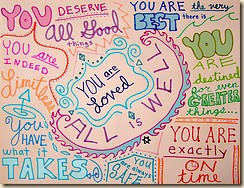 YOU DESERVE
All Good
things
YOU ARE the very
BEST there is
YOU
are
INDEED
Limitless
YOU
are
destined
for even
GREATER
things...
YOU are
Loved
ALL is WELL
You
HAVE
what it
TAKES
You
can always
SAFE
YOU ARE
exactly
ON
time